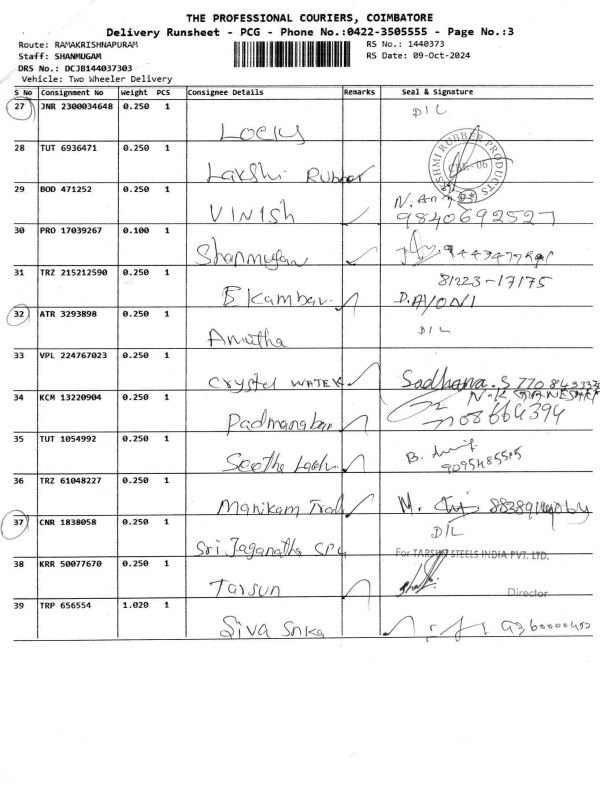 THE PROFESSIONAL COURIERS, COIMBATORE
Delivery Runsheet - PCG - Phone No.:0422-3505555 - Page No.:3
Route: RAMAKRISHNAPURAM RS No.: 1440373
Staff: SHANMUGAM RS Date: 09-Oct-2024
DRS No.: DCJB144037303
Vehicle: Two Wheeler Delivery
S No Consignment No Weight PCS Consignee Details Remarks Seal & Signature
27 JNR 2300034648 0.250 1 D/L
28 TUT 6936471 0.250 1 Lakshi Rubber
LAKSHMI RUBBER PRODUCTS
29 BOD 471252 0.250 1 VINISh
9840692527
30 PRO 17039267 0.100 1 Shanmugam
31 TRZ 215212590 0.250 1 81223-17175
32 ATR 3293898 0.250 1 Amutha D/L
33 VPL 224767023 0.250 1 crystal WATER Sadhana.S
34 KCM 13220904 0.250 1 Padmanaban
35 TUT 1054992 0.250 1
36 TRZ 61048227 0.250 1 Manikam M.
37 CNR 1838058 0.250 1 Sri Jaganatha D/L
For TARSUN STEELS INDIA PVT. LTD.
38 KRR 50077670 0.250 1 Tarsun
Director
39 TRP 656554 1.020 1 Siva